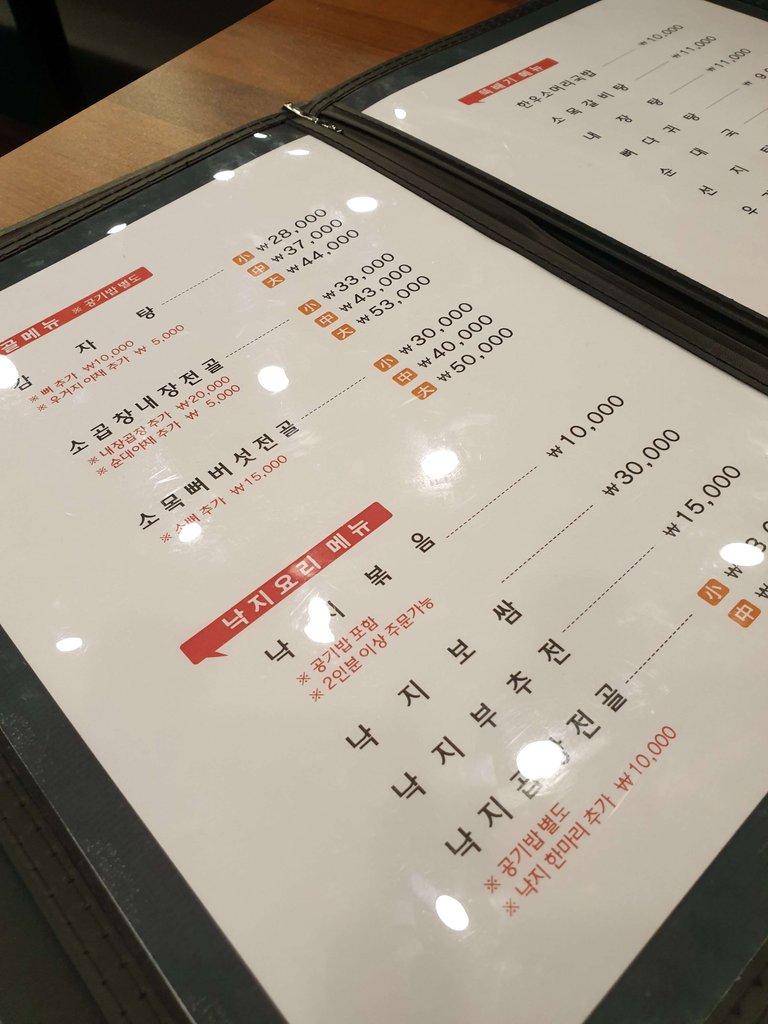 골메뉴 ※ 공기밥 별도
감자탕 小 ₩28,000
中 ₩37,000
大 ₩44,000
※ 뼈 추가 ₩10,000
※ 우거지야채 추가 ₩ 5,000
소곱창내장전골 小 ₩33,000
中 ₩43,000
大 ₩53,000
※ 내장곱창 추가 ₩20,000
※ 순대야채 추가 ₩ 5,000
소목뼈버섯전골 小 ₩30,000
中 ₩40,000
大 ₩50,000
※ 소뼈 추가 ₩15,000
낙지요리 메뉴
낙지볶음 ₩10,000
※ 공기밥 포함
※ 2인분 이상 주문가능
낙지보쌈 ₩30,000
낙지부추전 ₩15,000
낙지곱창전골 小 ₩
中 ₩
※ 공기밥 별도
※ 낙지 한마리 추가 ₩10,000
뚝배기 메뉴
한우소머리국밥 ₩10,000
소목갈비탕 ₩11,000
내장탕 ₩11,000
뼈다귀탕 ₩
순대국
선지
우